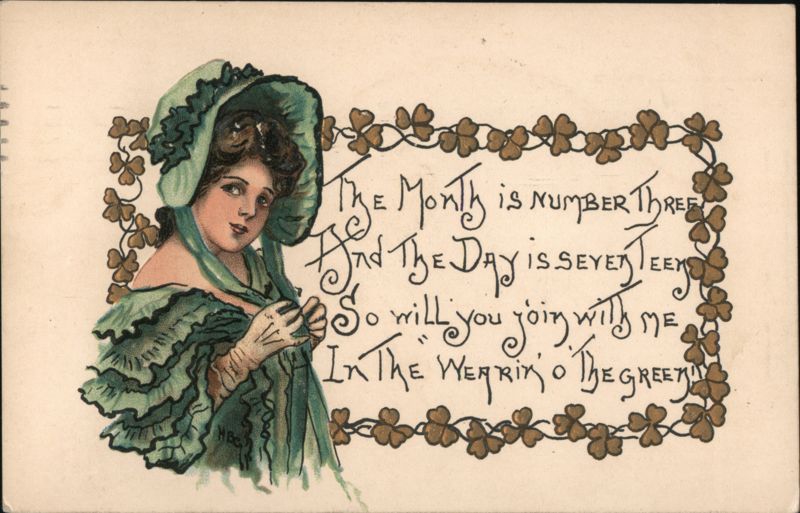 The Month is number Three
And The Day is seven Teen
So will you join with me
In The "Wearin' o' The green"
HBG